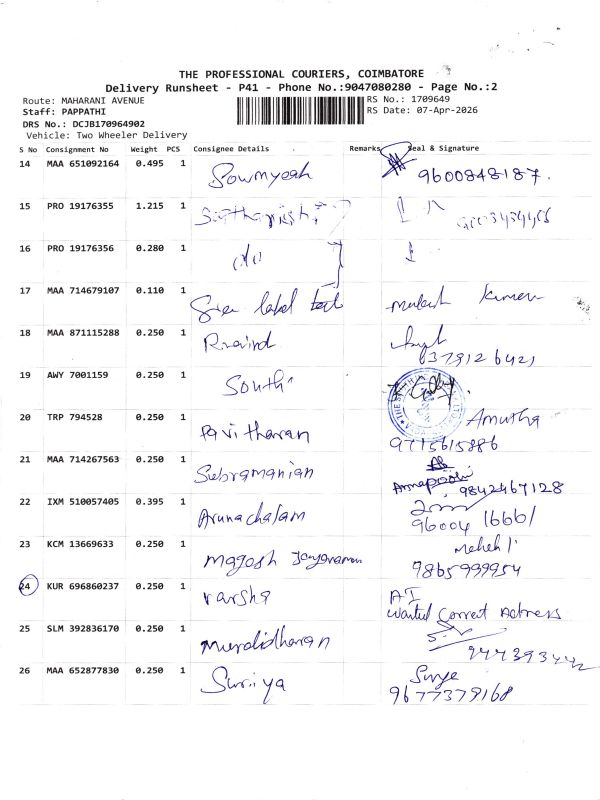 THE PROFESSIONAL COURIERS, COIMBATORE
Delivery Runsheet - P41 - Phone No.:9047080280 - Page No.:2
Route: MAHARANI AVENUE RS No.: 1709649
Staff: PAPPATHI RS Date: 07-Apr-2026
DRS No.: DCJB170964902
Vehicle: Two Wheeler Delivery
S No Consignment No Weight PCS Consignee Details Remarks Seal & Signature
14 MAA 651092164 0.495 1 Sowmyeah 9600848187.
15 PRO 19176355 1.215 1
16 PRO 19176356 0.280 1
17 MAA 714679107 0.110 1 label Kumar
18 MAA 871115288 0.250 1
19 AWY 7001159 0.250 1 South
20 TRP 794528 0.250 1 Pavitharan Amutha
9715615886
21 MAA 714267563 0.250 1 Subramanian
9842467128
22 IXM 510057405 0.395 1 Arunachalam
96004 16661
23 KCM 13669633 0.250 1 Magesh Jayaraman
9865999954
24 KUR 696860237 0.250 1 Varsha
Wanted Correct Adress
25 SLM 392836170 0.250 1 Muralidharan
26 MAA 652877830 0.250 1 Suriya
9677379168